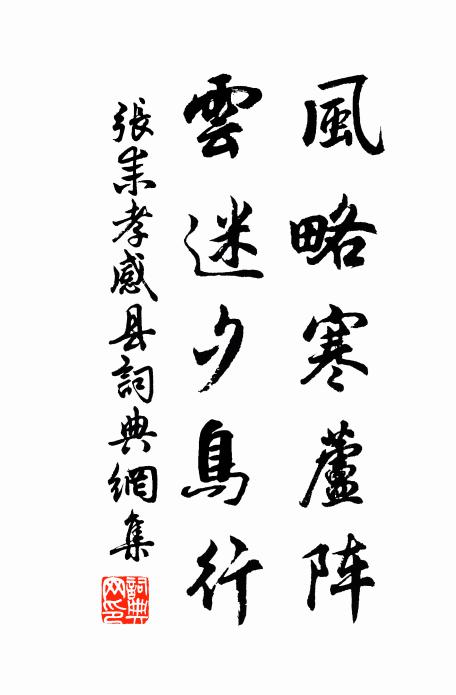 風略寒蘆阵
雲迷夕鳥行
張耒孝感县詞典網集
詞典网印